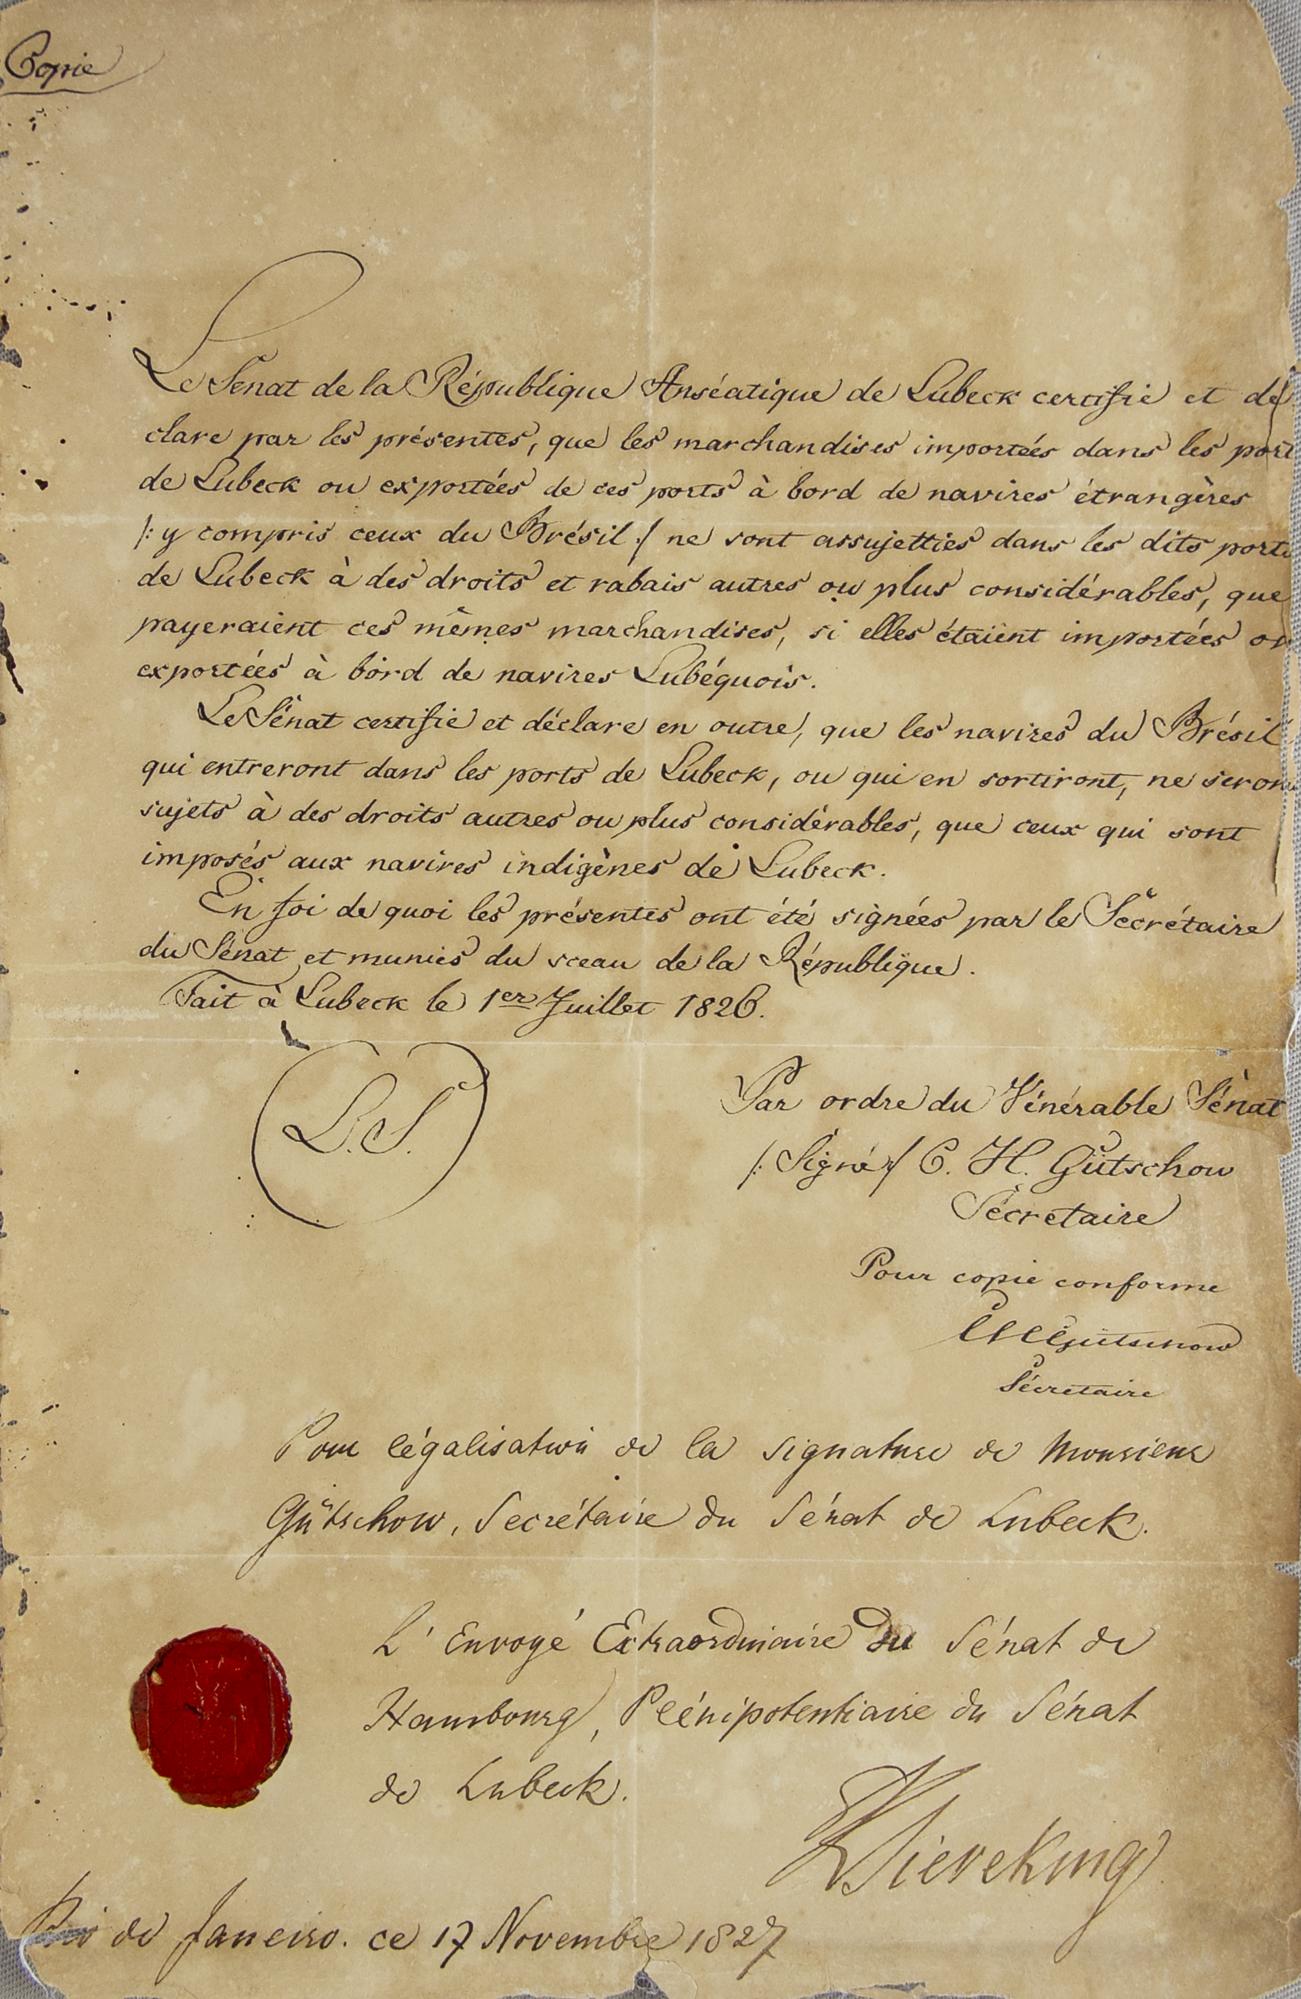 Copie
Le Sénat de la République Anséatique de Lubeck certifie et dé
clare par les présentes, que les marchandises importées dans les port
de Lubeck ou exportées de ces ports à bord de navires étrangères
/: y compris ceux du Brésil :/ ne sont assujetties dans les dits ports
de Lubeck à des droits et rabais autres ou plus considérables, que
payeraient ces mêmes marchandises, si elles étaient importées ou
exportées à bord de navires Lubéquois.
Le Sénat certifie et déclare en outre, que les navires du Brésil
qui entreront dans les ports de Lubeck, ou qui en sortiront, ne seron
sujets à des droits autres ou plus considérables, que ceux qui sont
imposés aux navires indigènes de Lubeck.
En foi de quoi les présentes ont été signées par le Secrétaire
du Sénat et munies du sceau de la République.
Fait à Lubeck le 1er Juillet 1826.
L.S.
Par ordre du Vénérable Sénat
/: Signé :/ C. H. Gütschow
Secretaire
Pour copie conforme
CHGütschow
Sécretaire
Pour légalisation de la signature de Monsieur
Gütschow, Secrétaire du Sénat de Lubeck.
L'Envoyé Extraordinaire du Sénat de
Hambourg, Plénipotentiaire du Sénat
de Lubeck.
KSieveking
Rio de Janeiro. ce 17 Novembre 1827